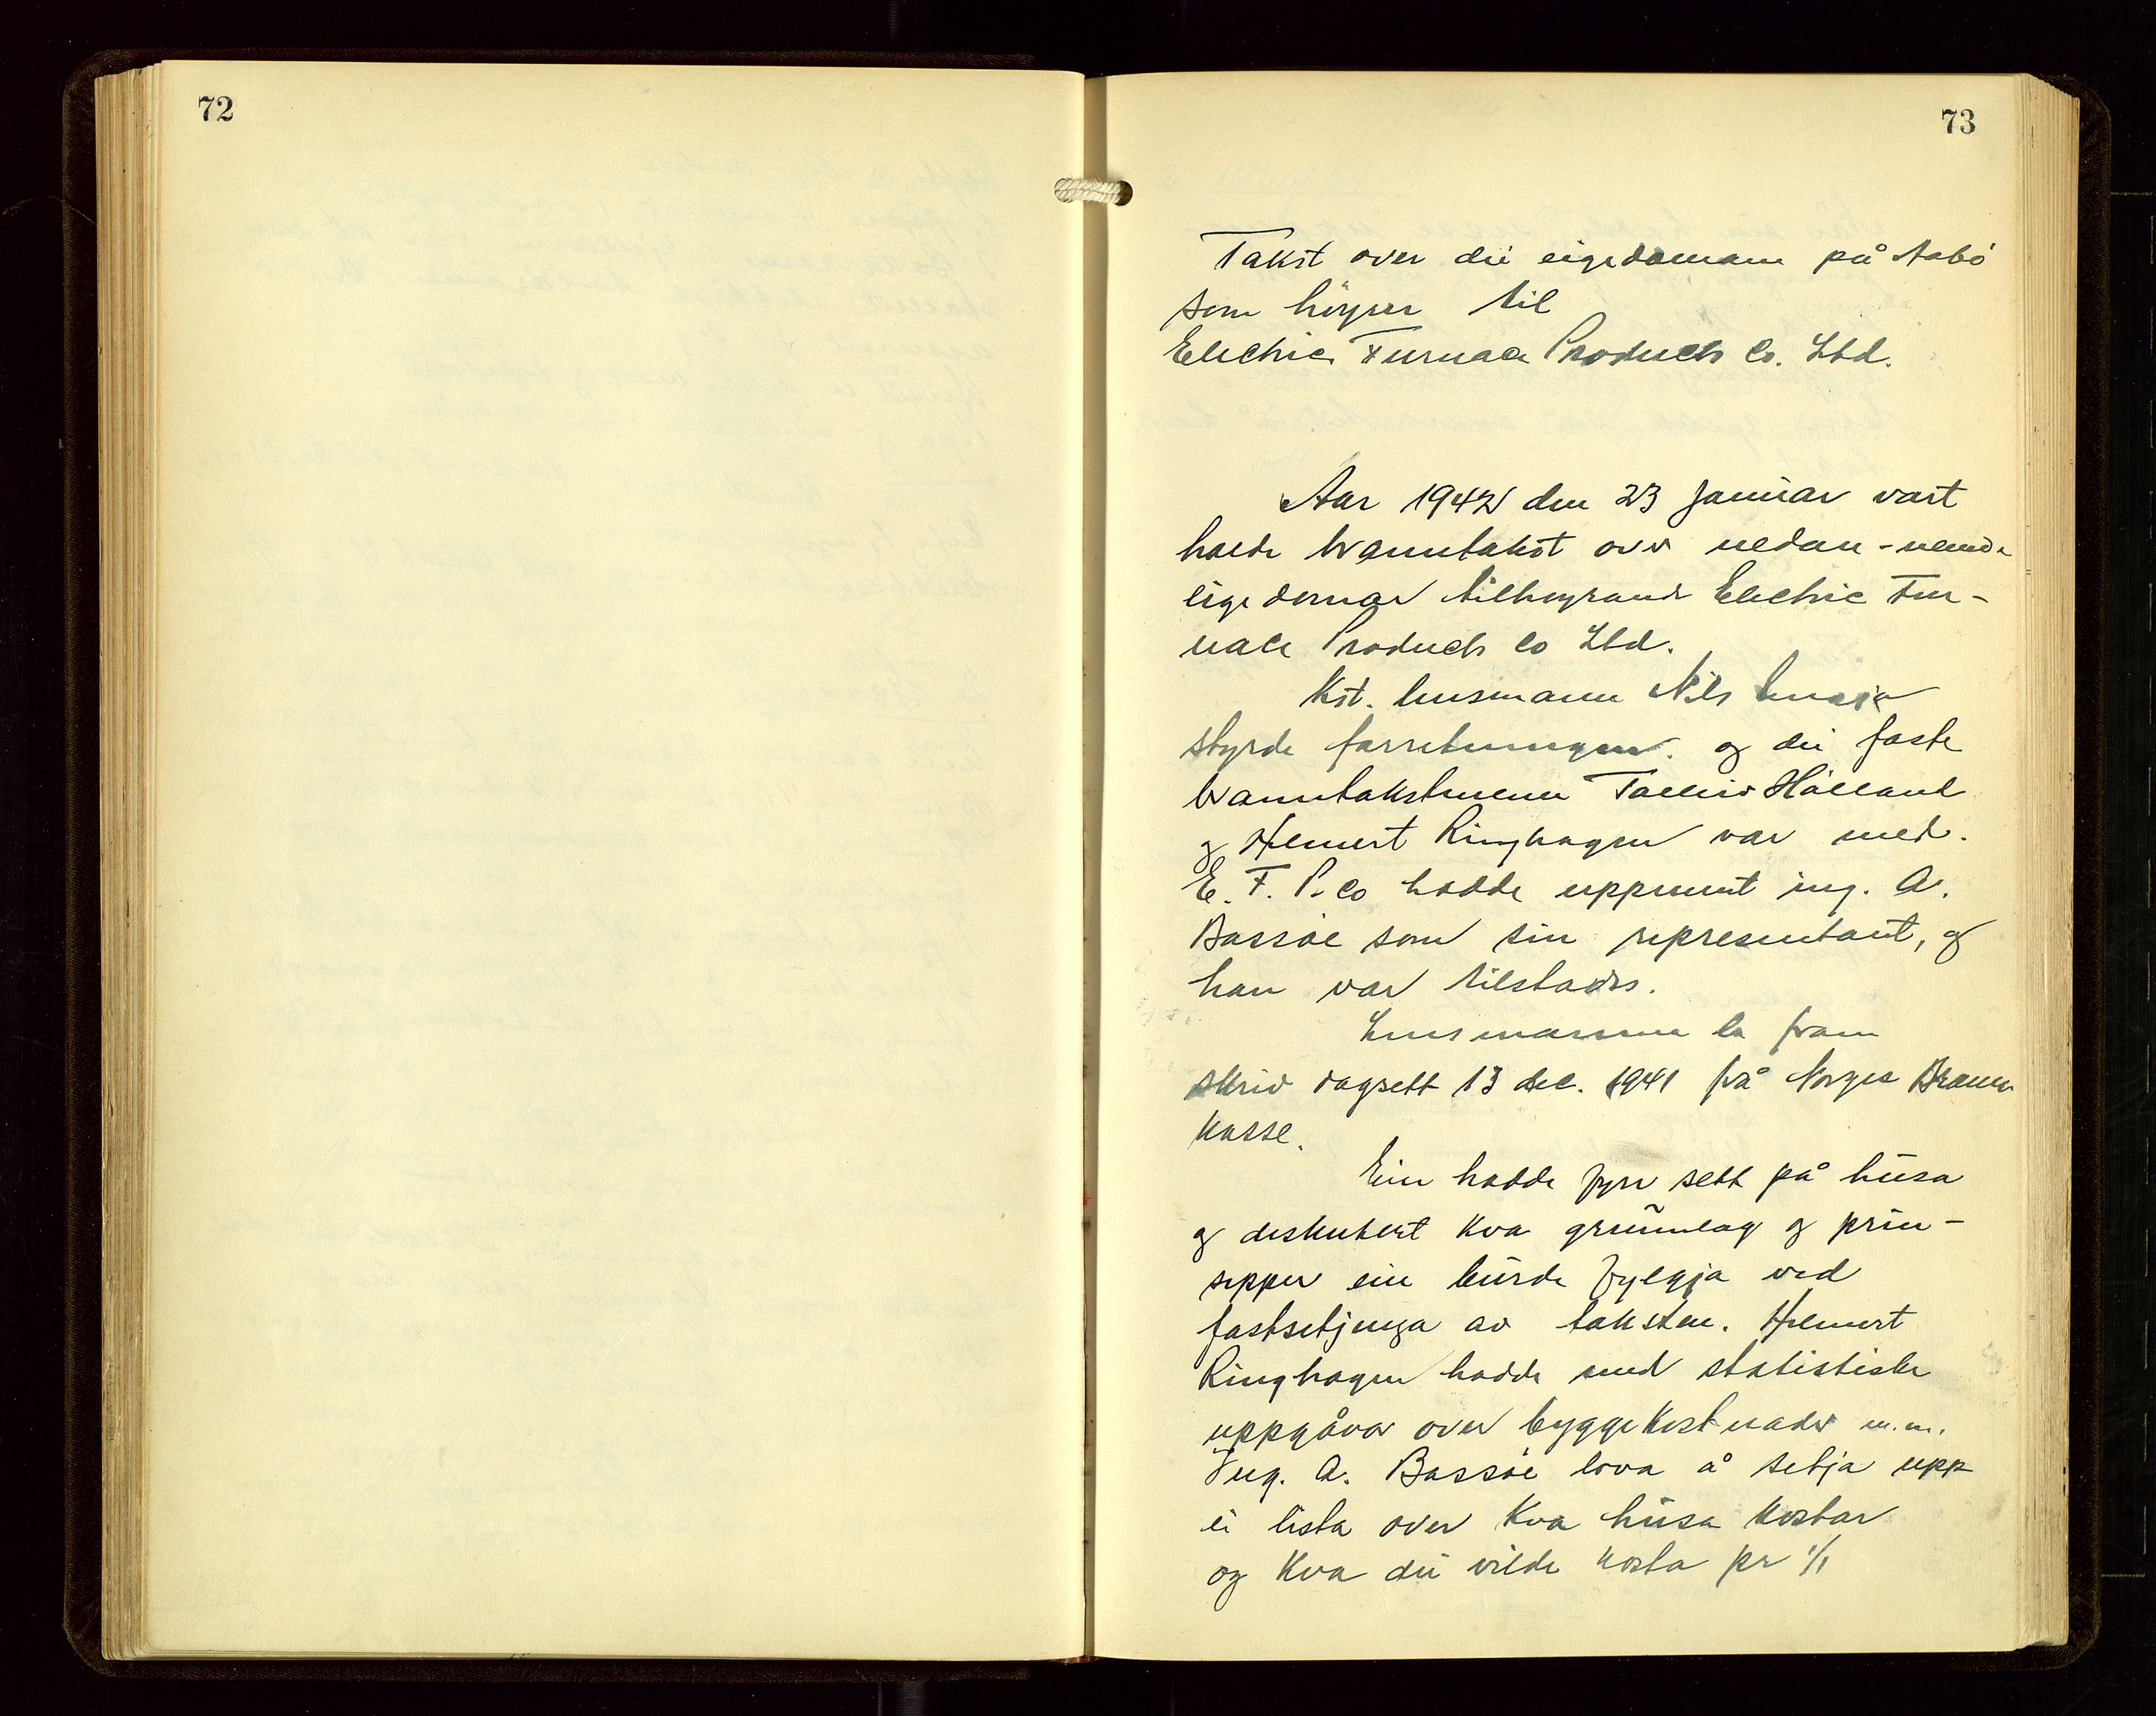 72
73
Takst over dei eigedomane på Aabö
som höyrer til
Electric Furnace Products Co. Ltd.
Aar 1942 den 23 januar vart
halde branntakst over nedan-nemde
eigedomar tilhoyrande Electric Fur-
nace Products Co Ltd.
Kst. lensmann Nils
styrde forretningen. og dei faste
branntakstmenn Talleiv Hålland
og Helmert Ringhagen var med.
E. F. P. Co hadde uppnemt ing. A.
Bassöe som sin representant, og
han var tilstades.
Lensmannen la fram
skriv dagsett 13 dec. 1941 frå Norges Brann-
kasse.
Ein hadde fyrr sett på husa
og diskutert kva grunnlag og prin-
sipper ein burde fylgja ved
fastsetjinga av taksten. Helmert
Ringhagen hadde med statistiske
uppgåvor over byggekostnader m.m.
Ing. A. Bassöe lova å setja upp
ei lista over kva husa kostar
og kva dei vilde kosta pr 1/1